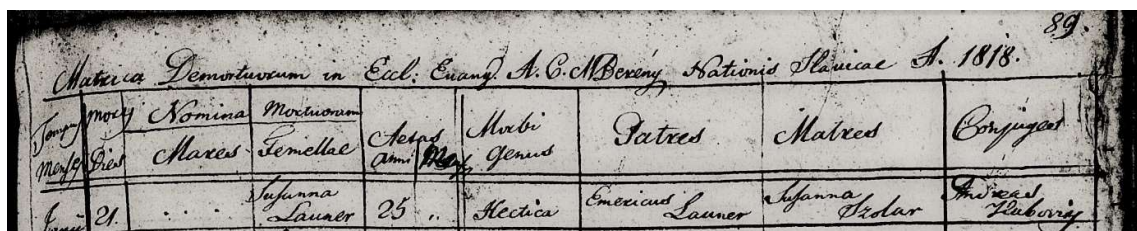 89.
Matrica Demortuorum in Eccl: Evang. A. C. MBerény Nationis Slavicae A. 1818.
Nomina Mortuorum
Mensis Dies Mares Femellae Aetas Anni Morbi Genus Patres Matres Conjuges
21. Susanna Launer 25 " Hectica Emericus Launer Susanna Szolar Andreas